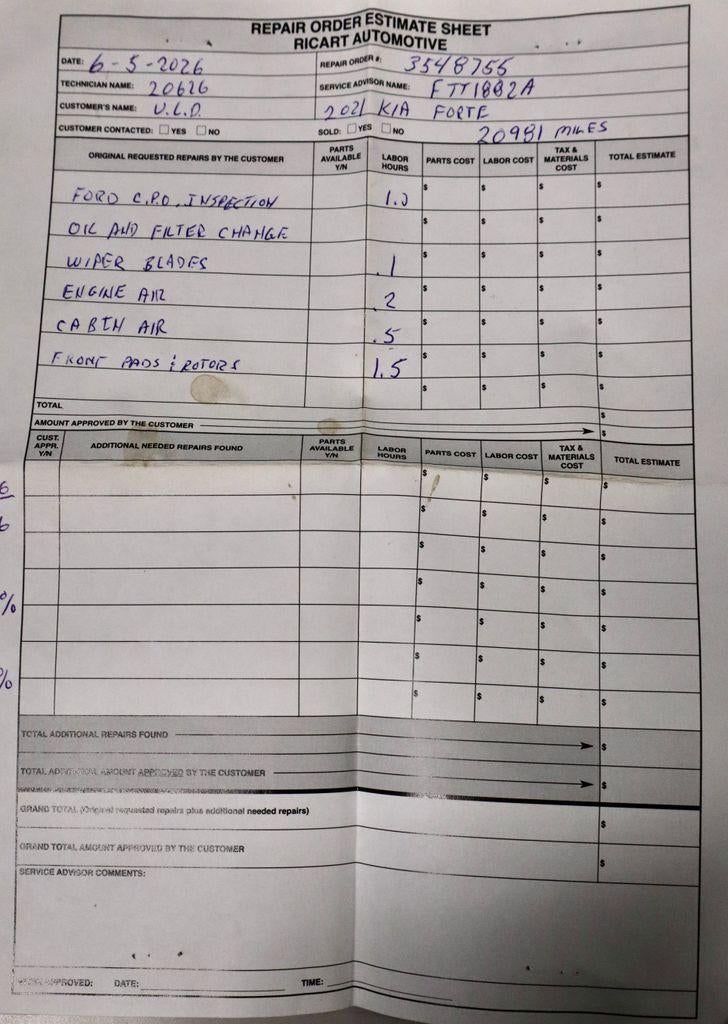 REPAIR ORDER ESTIMATE SHEET
RICART AUTOMOTIVE
DATE: 6-5-2026 REPAIR ORDER #: 3548755
TECHNICIAN NAME: 20626 SERVICE ADVISOR NAME: FTT1882A
CUSTOMER'S NAME: U.L.D. 2021 KIA FORTE
CUSTOMER CONTACTED: YES NO SOLD: YES NO 20981 MILES
ORIGINAL REQUESTED REPAIRS BY THE CUSTOMER PARTS AVAILABLE Y/N LABOR HOURS PARTS COST LABOR COST TAX & MATERIALS COST TOTAL ESTIMATE
FORD C.P.O. INSPECTION 1.0 $ $ $ $
OIL AND FILTER CHANGE $ $ $ $
WIPER BLADES .1 $ $ $ $
ENGINE AIR .2 $ $ $ $
CABIN AIR .5 $ $ $ $
FRONT PADS & ROTORS 1.5 $ $ $ $
$ $ $ $
TOTAL $
AMOUNT APPROVED BY THE CUSTOMER $
CUST. APPR. Y/N ADDITIONAL NEEDED REPAIRS FOUND PARTS AVAILABLE Y/N LABOR HOURS PARTS COST LABOR COST TAX & MATERIALS COST TOTAL ESTIMATE
$ $ $ $
6 $ $ $ $
6 $ $ $ $
% $ $ $ $
$ $ $ $
% $ $ $ $
$ $ $ $
TOTAL ADDITIONAL REPAIRS FOUND $
TOTAL ADDITIONAL AMOUNT APPROVED BY THE CUSTOMER $
GRAND TOTAL (Original requested repairs plus additional needed repairs) $
GRAND TOTAL AMOUNT APPROVED BY THE CUSTOMER $
SERVICE ADVISOR COMMENTS:
APPROVED: DATE: TIME: